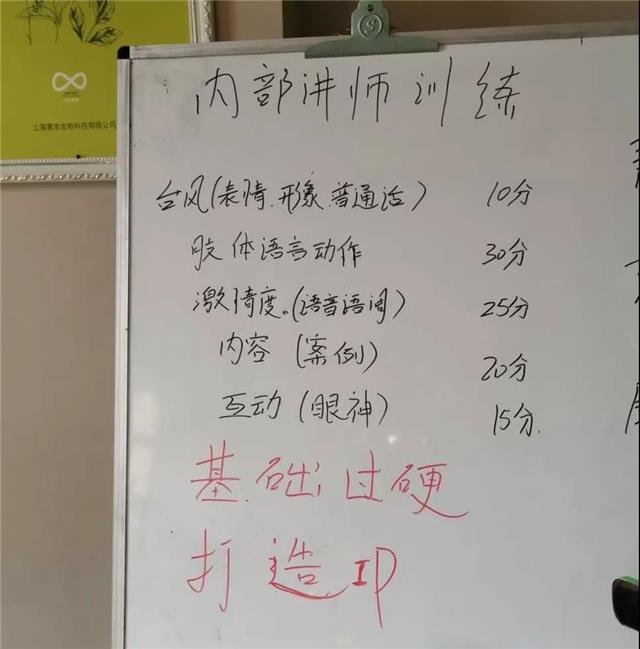 上海
生物科技有限公司
内部讲师训练
台风(表情、形象、普通话) 10分
肢体语言动作 30分
激情度。(语音语调) 25分
内容(案例) 20分
互动(眼神) 15分.
基础过硬
打造IP